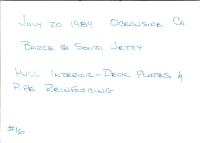 July 20 1984 Oceanside Ca
Barge @ South Jetty
Hull Interior-Deck Plates &
Pipe Reinforcing
#16